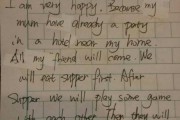 I am very happy, Because my
mum have already a party
in a hotel near my home
All my friend will come. We
will eat supper first. After
supper we will play some game
with each other Then they will